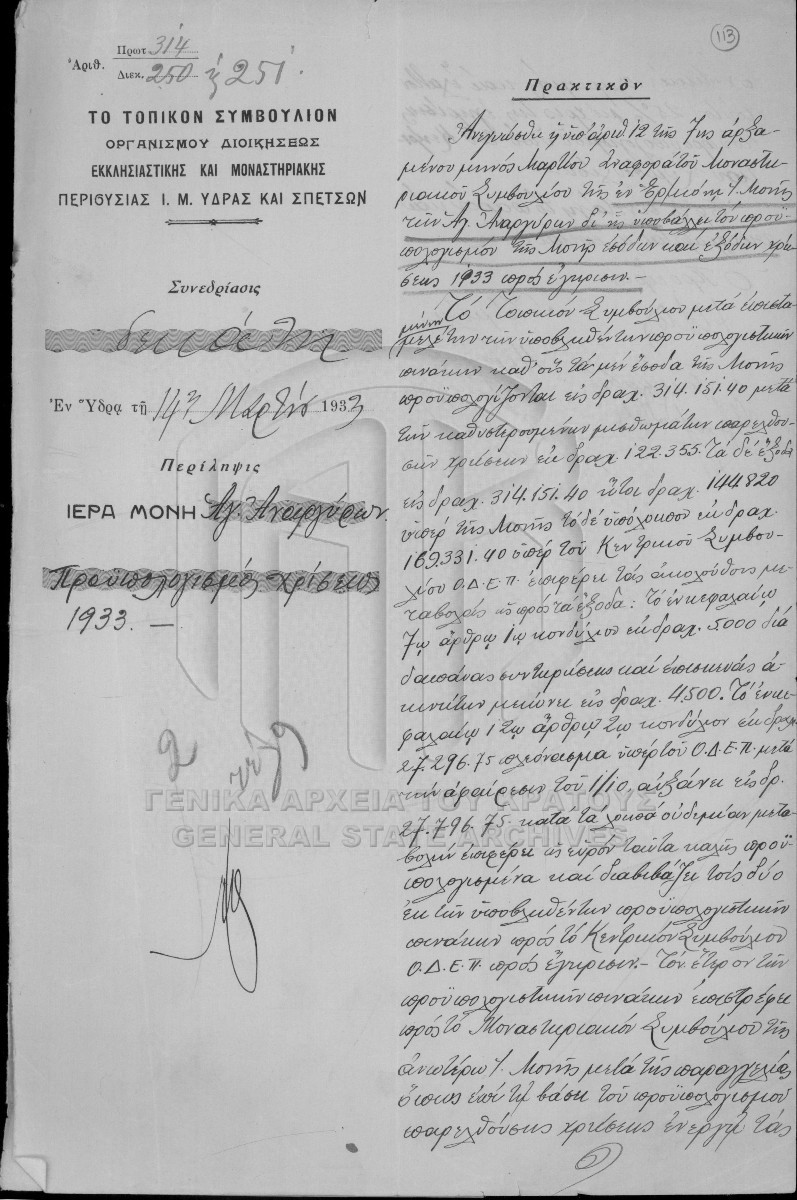 113
Ἀριθ. Πρωτ. 314
Διεκ. 250 ἢ 251.
ΤΟ ΤΟΠΙΚΟΝ ΣΥΜΒΟΥΛΙΟΝ
ΟΡΓΑΝΙΣΜΟΥ ΔΙΟΙΚΗΣΕΩΣ
ΕΚΚΛΗΣΙΑΣΤΙΚΗΣ ΚΑΙ ΜΟΝΑΣΤΗΡΙΑΚΗΣ
ΠΕΡΙΟΥΣΙΑΣ Ι. Μ. ΥΔΡΑΣ ΚΑΙ ΣΠΕΤΣΩΝ
Συνεδρίασις
δεκάτη
Ἐν Ὕδρᾳ τῇ 14ῃ Μαρτίου 1933
Περίληψις
ΙΕΡΑ ΜΟΝΗ Ἁγ. Ἀναργύρων.
Προϋπολογισμὸς χρήσεως
1933. —
Πρακτικὸν
Ἀνεγνώσθη ἡ ὑπ' ἀριθ. 12 τῆς 7ης ἀρξα-
μένου μηνὸς Μαρτίου ἀναφορὰ τοῦ Μοναστη-
ριακοῦ Συμβουλίου τῆς ἐν Ἑρμιόνῃ Ἱ. Μονῆς
τῶν Ἁγ. Ἀναργύρων δι' ἧς ὑποβάλλει τὸν προϋ-
πολογισμὸν τῆς Μονῆς ἐσόδων καὶ ἐξόδων χρή-
σεως 1933 πρὸς ἔγκρισιν. —
Τὸ Τοπικὸν Συμβούλιον μετὰ ἐπιστα-
μένην
μελέτην τῶν ὑποβληθέντων προϋπολογιστικῶν
πινάκων καθ' οὓς τὰ μὲν ἔσοδα τῆς Μονῆς
προϋπολογίζονται εἰς δραχ. 314.151.40 μετὰ
τῶν καθυστερουμένων μισθωμάτων παρελθου-
σῶν χρήσεων ἐκ δραχ. 122.355. Τὰ δὲ ἔξοδα
εἰς δραχ. 314.151.40 ἤτοι δραχ. 144820
ὑπὲρ τῆς Μονῆς τὸ δὲ ὑπόλοιπον ἐκ δραχ.
169.331.40 ὑπὲρ τοῦ Κεντρικοῦ Συμβου-
λίου Ο.Δ.Ε.Π. ἐπιφέρει τὰς ἀκολούθους με-
ταβολὰς ὡς πρὸς τὰ ἔξοδα: Τὸ ἐν κεφαλαίῳ
7ῳ ἄρθρῳ 1ῳ κονδύλιον ἐκ δραχ. 5000 διὰ
δαπάνας συντηρήσεως καὶ ἐπισκευὰς ἀ-
κινήτων μειώνει εἰς δραχ. 4.500. Τὸ ἐν κε-
φαλαίῳ 12ῳ ἄρθρῳ κονδύλιον ἐκ δραχμ.
27.296.75 πλεόνασμα ὑπὲρ τοῦ Ο.Δ.Ε.Π. μετὰ
τὴν ἀφαίρεσιν τοῦ 1/10, αὐξάνει εἰς δρ.
27.796.75. κατὰ τὰ λοιπὰ οὐδεμίαν μετα-
βολὴν ἐπιφέρει ὡς εὑρὸν ταῦτα καλῶς προϋ-
πολογισμένα καὶ διαβιβάζει τοὺς δύο
ἐκ τῶν ὑποβληθέντων προϋπολογιστικῶν
πινάκων πρὸς τὸ Κεντρικὸν Συμβούλιον
Ο.Δ.Ε.Π. πρὸς ἔγκρισιν. — Τὸν ἕτερον τῶν
προϋπολογιστικῶν πινάκων ἐπιστρέφει
πρὸς τὸ Μοναστηριακὸν Συμβούλιον τῆς
ἀνωτέρω Ἱ. Μονῆς μετὰ τῆς παραγγελίας
ὅπως ἐπὶ τῇ βάσει τοῦ προϋπολογισμοῦ
παρελθούσης χρήσεως ἐνεργῇ τὰς
ΓΕΝΙΚΑ ΑΡΧΕΙΑ ΤΟΥ ΚΡΑΤΟΥΣ
GENERAL STATE ARCHIVES